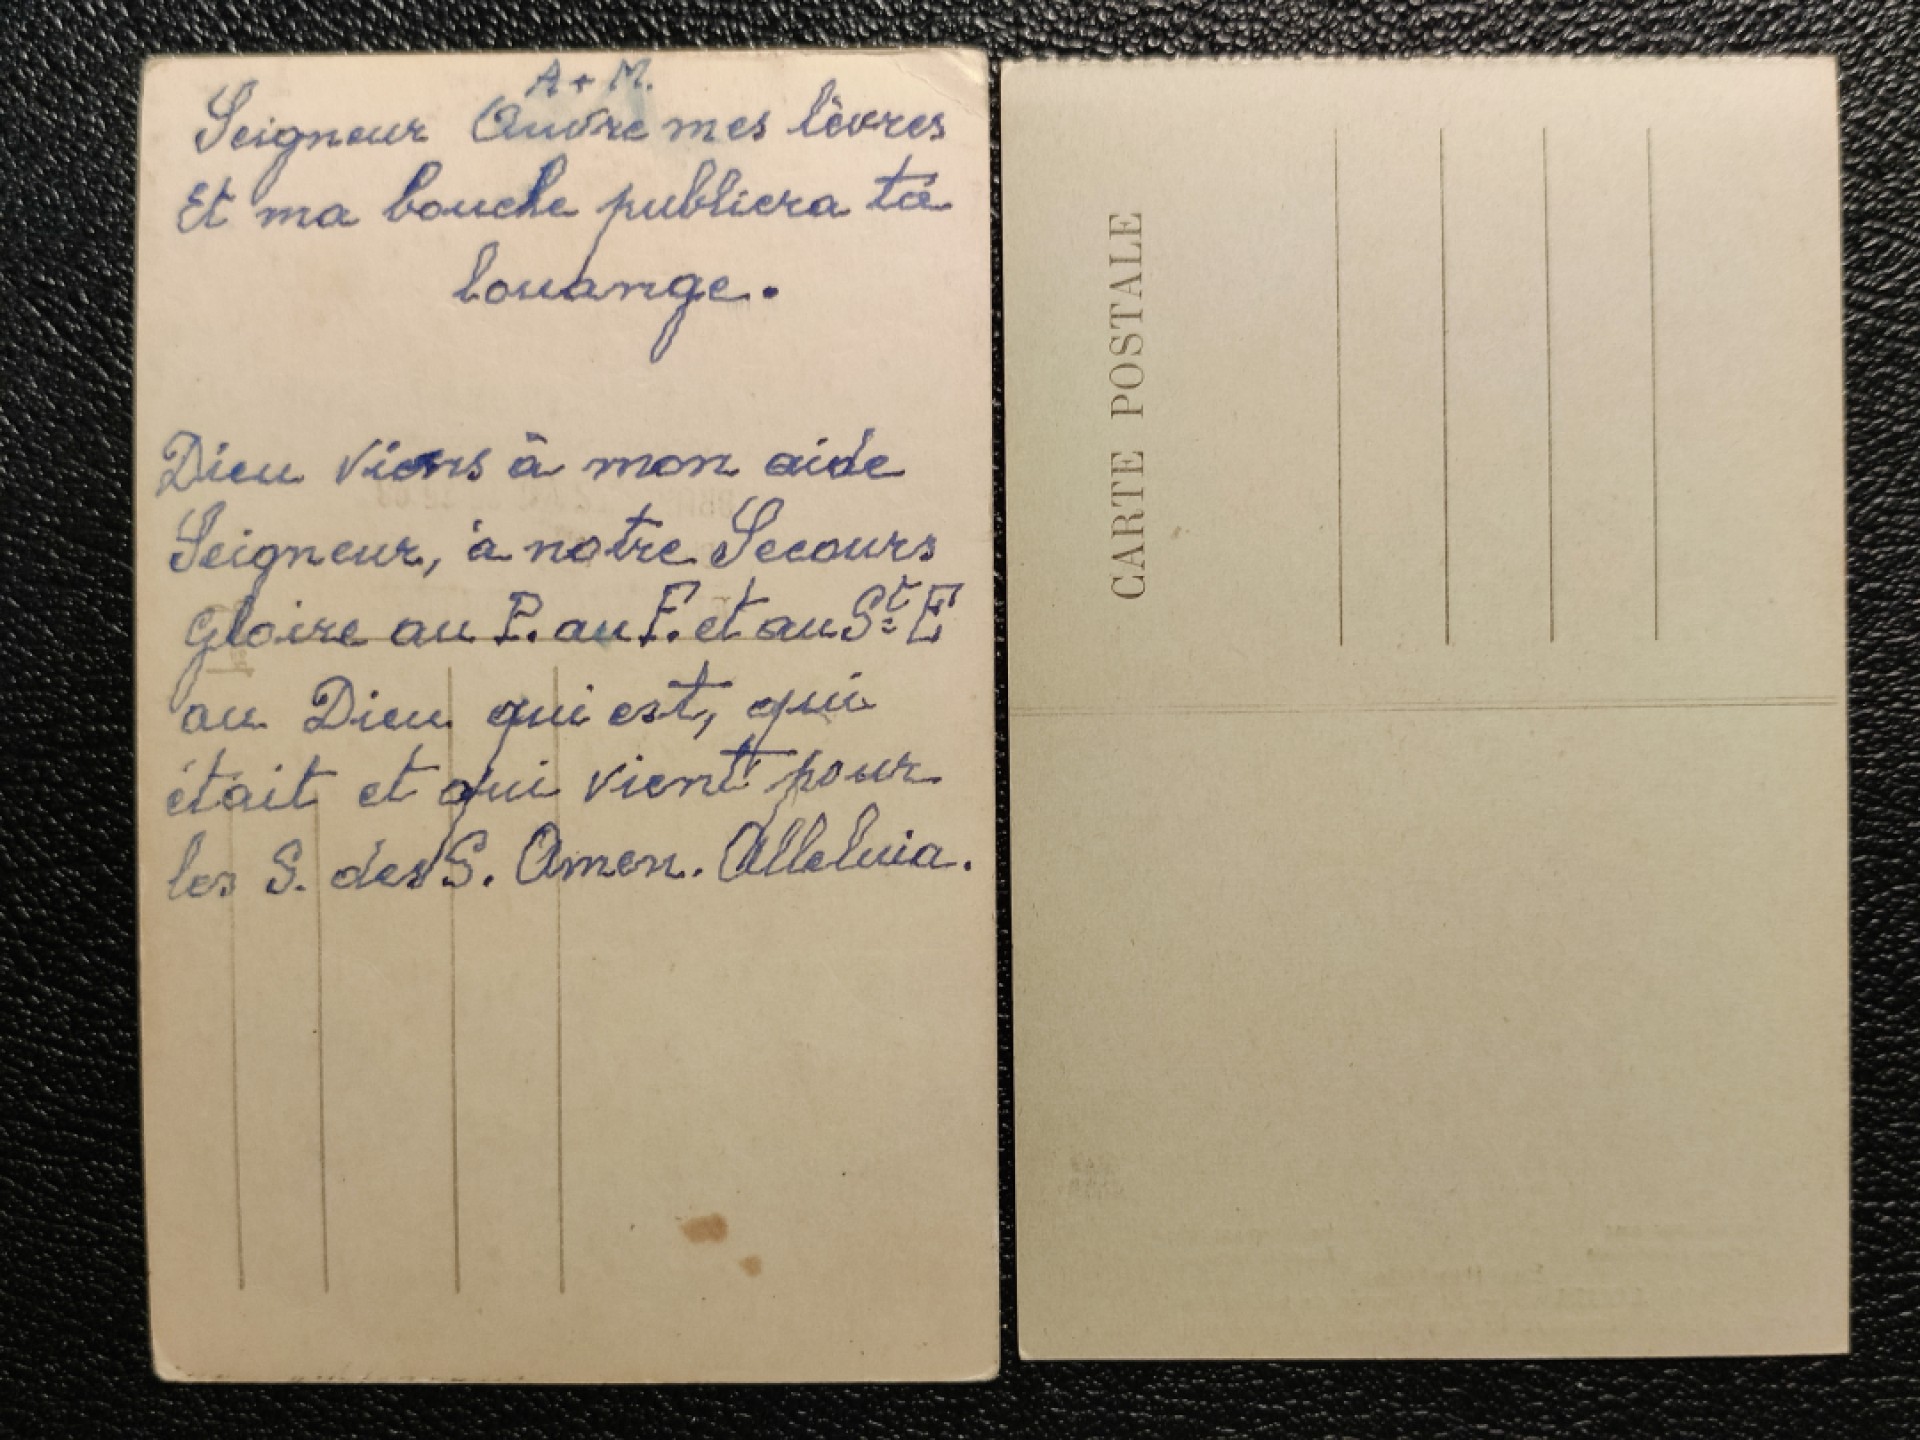 A + M.
Seigneur Ouvre mes lèvres
Et ma bouche publiera ta
louange.
Dieu viens à mon aide
Seigneur, à notre Secours
Gloire au P. au F. et au St E
au Dieu qui est, qui
était et qui vient pour
les S. des S. Amen. Alleluia.
CARTE POSTALE